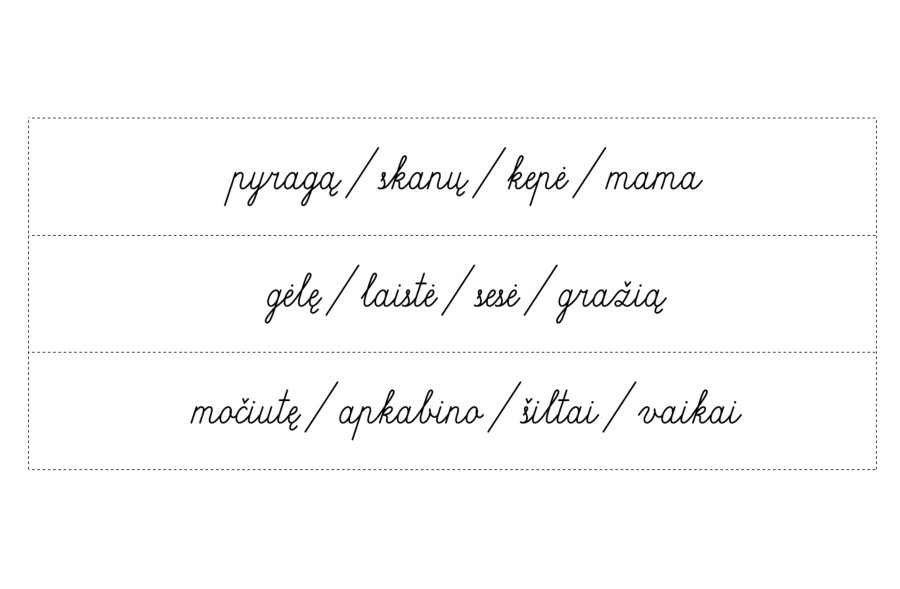 pyragą / skanų / kepė / mama
gėlę / laistė / sesė / gražią
močiutę / apkabino / šiltai / vaikai